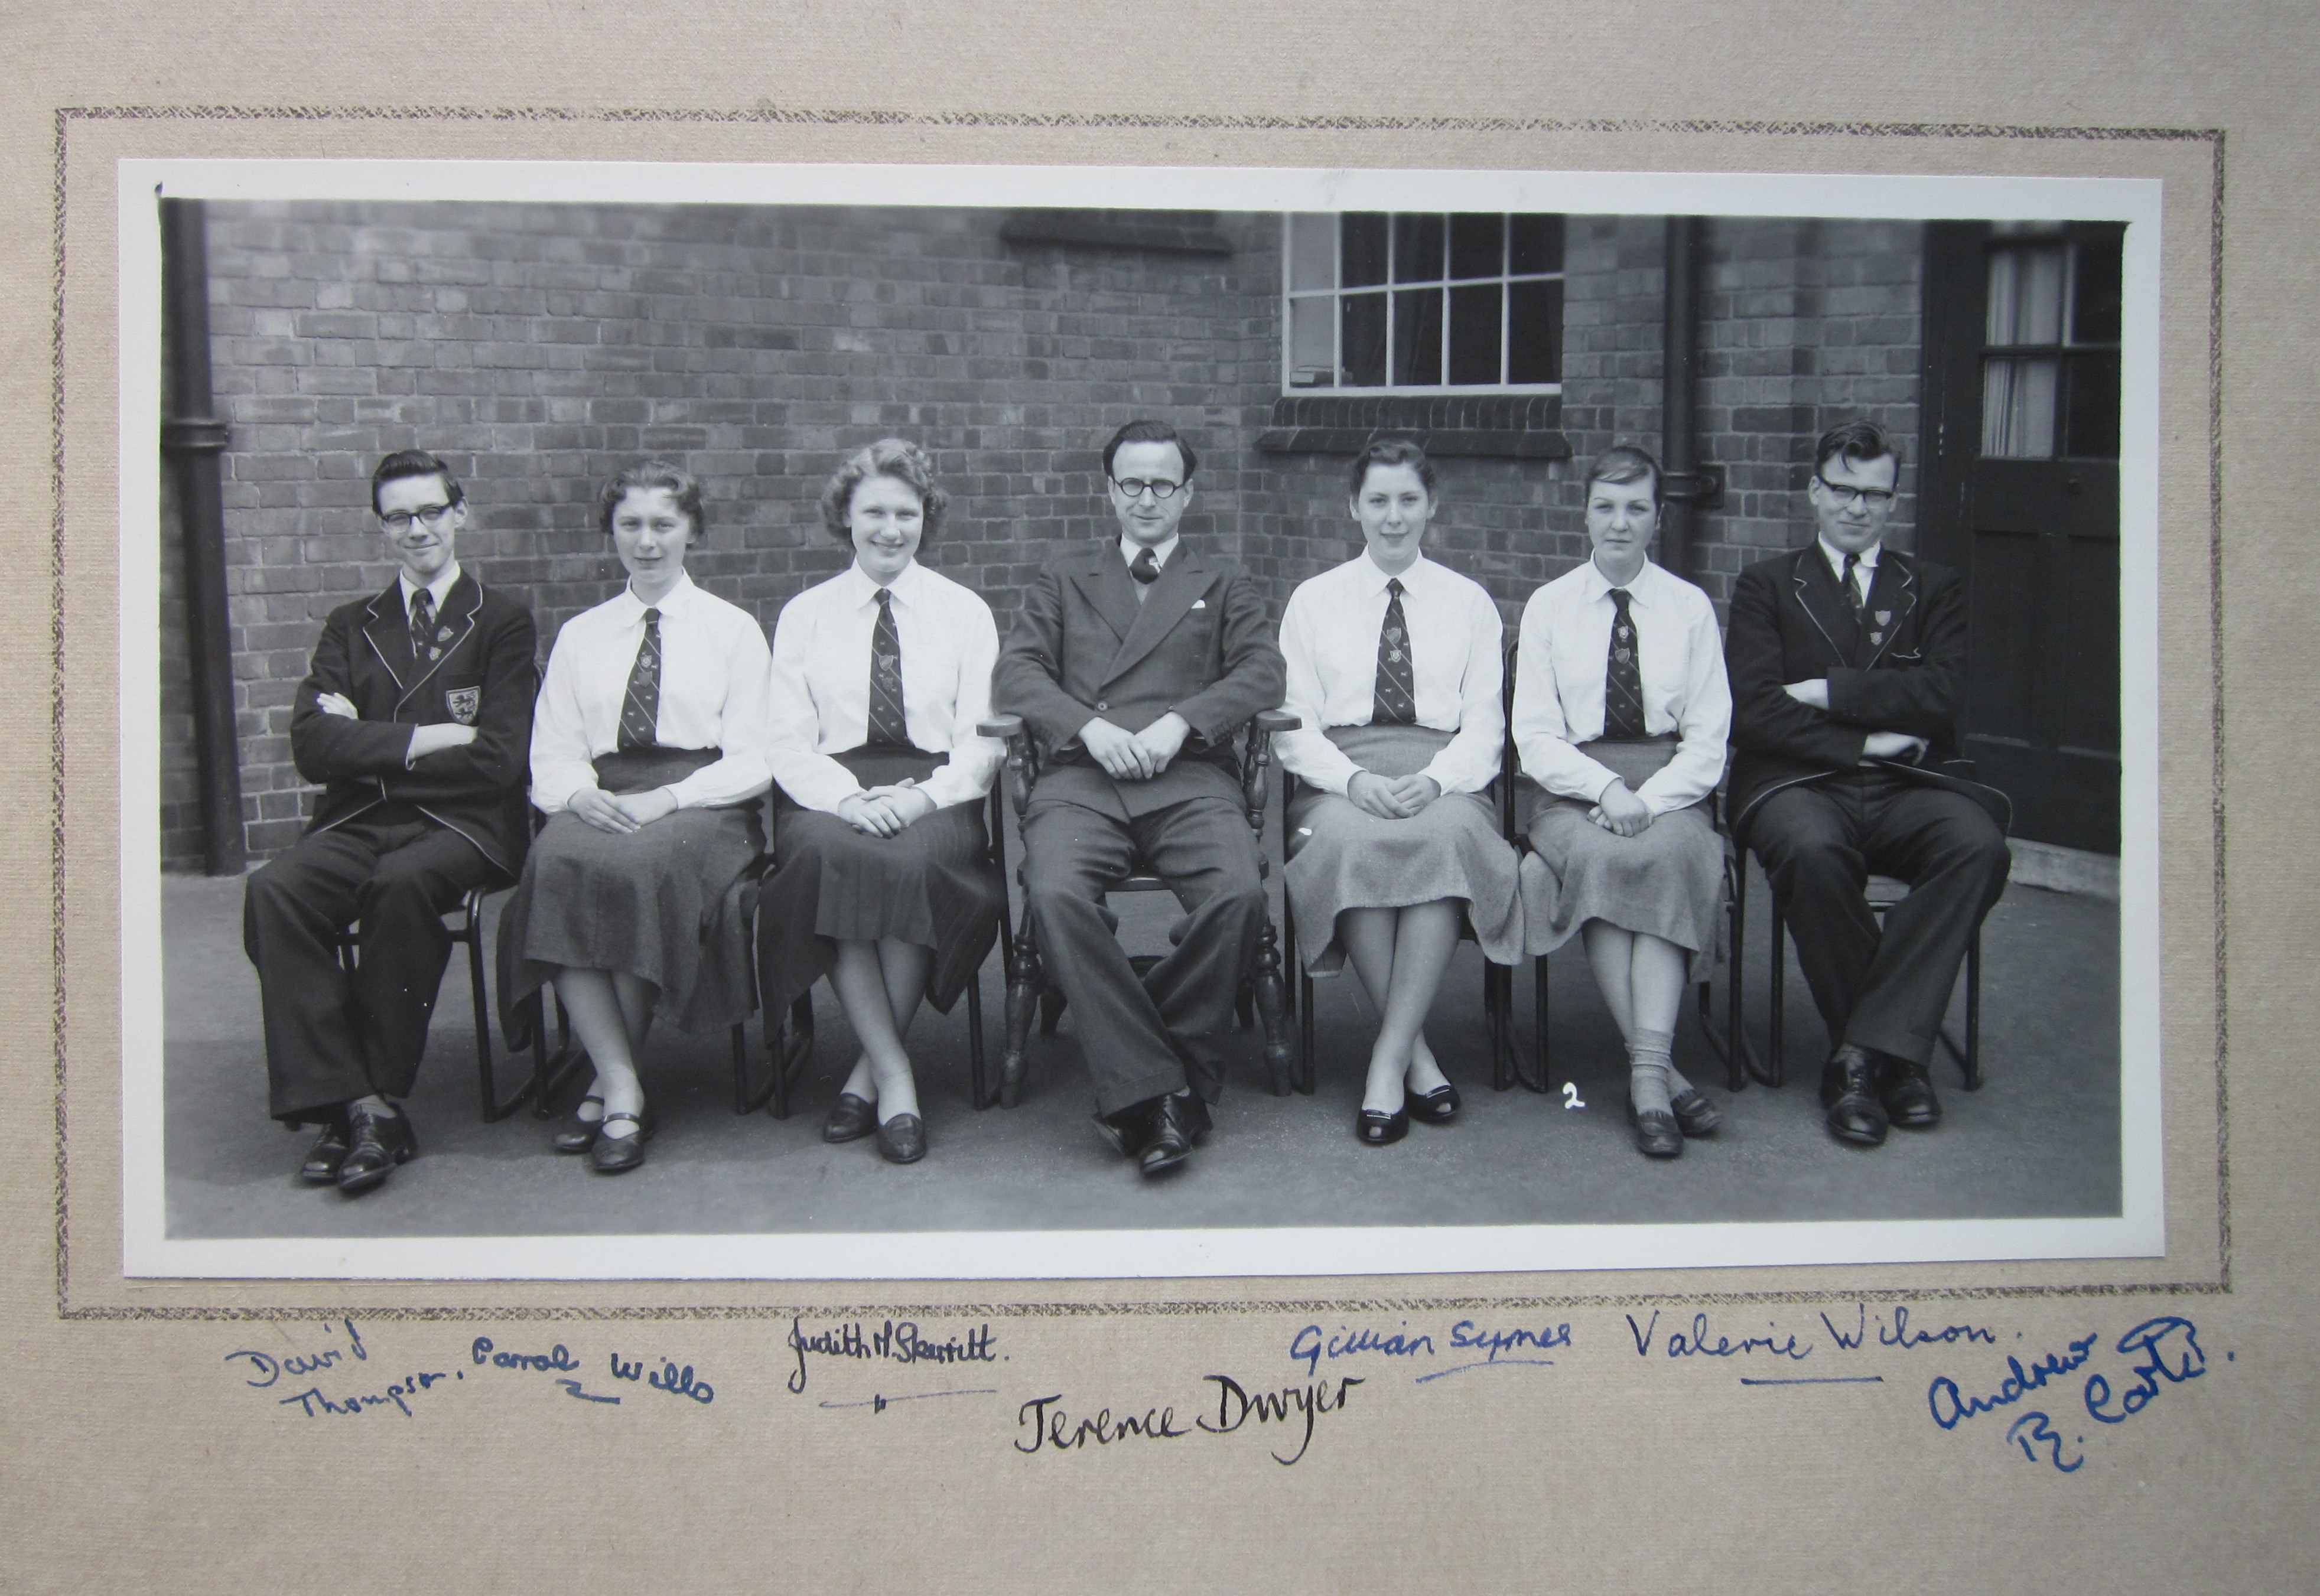 2
David
Thompson.
Carol Wills
Judith M. Skerritt.
"
Terence Dwyer
Gillian Symes
Valerie Wilson.
Andrew
R.